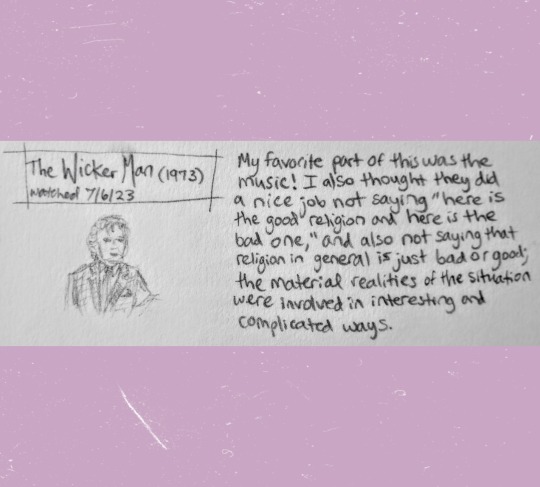 The Wicker Man (1973)
watched 7/6/23
My favorite part of this was the
music! I also thought they did
a nice job not saying "here is
the good religion and here is the
bad one," and also not saying that
religion in general is just bad or good;
the material realities of the situation
were involved in interesting and
complicated ways.